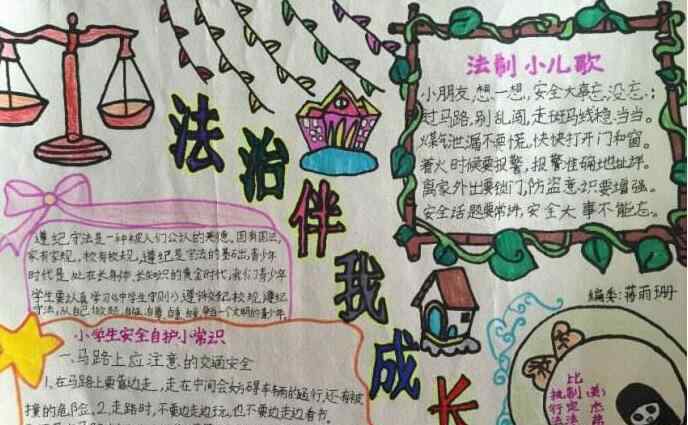 法治伴我成长
法制小儿歌
小朋友,想一想,安全大事忘没忘;
过马路,别乱闯,走斑马线稳当当。
煤气泄漏不要慌,快快打开门和窗。
着火时候要报警,报警准确地址详。
离家外出要锁门,防盗意识要增强。
安全话题要常讲,安全大事不能忘。
编委:蒋雨珊
遵纪守法是一种被人们公认的美德。国有国法,
家有家规,校有校规,遵纪是守法的基础,青少年
时代是处在长身体,长知识的黄金时代,我们青少年
学生要认真学习《中学生守则》,遵守校纪校规,遵纪
守法,从自己做起 自强 自尊 自
小学生安全自护小常识
一、马路上应注意的交通安全
1、在马路上要靠边走,走在中间会妨碍车辆的通行,还有被
撞的危险。2、走路时,不要边走边玩,也不要边走边看书。
比
制定法
执行法